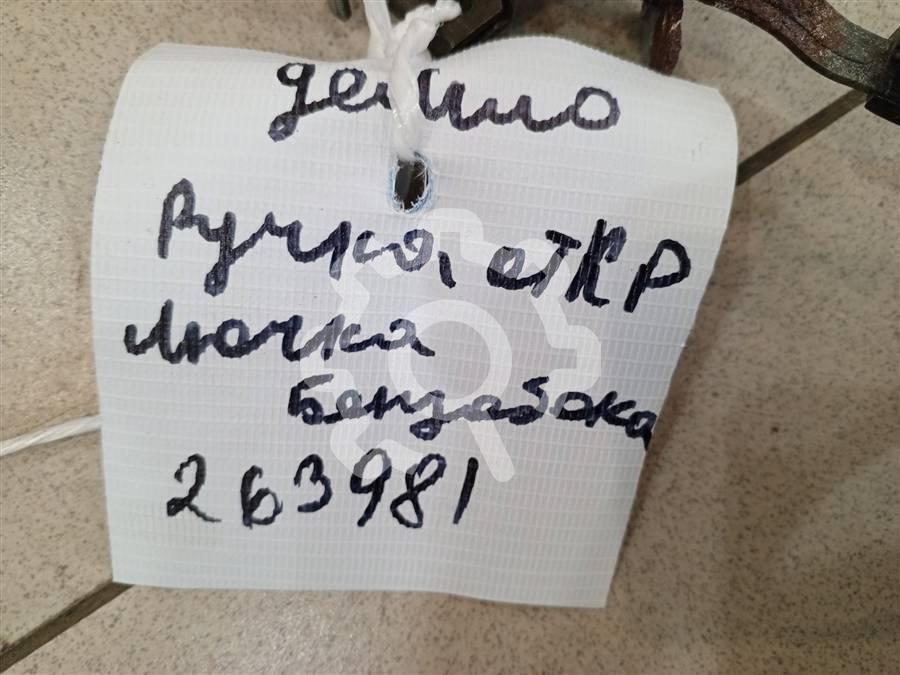 демио
Ручка откр
лючка
Бензобака
263981